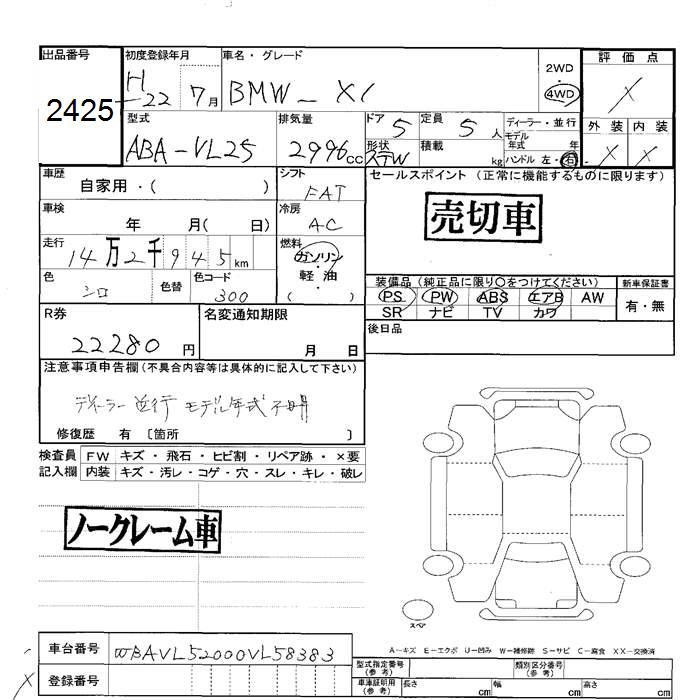 出品番号 初度登録年月 車名・グレード 2WD 4WD 評価点
2425 H22 7月 BMW - X1 X
型式 排気量 ドア 定員 ディーラー・並行 外装 内装
ABA-VL25 2996cc 5 5人 モデル年式 年 X X
形状 STW 積載 kg ハンドル 左・右
車歴 シフト セールスポイント (正常に機能するものに限ります)
自家用・( ) FAT
車検 冷房 売切車
年 月( 日) AC
走行 燃料
14万2千945km ガソリン・軽油・( )
色 色替 色コード 装備品(純正品に限り○をつけてください) 新車保証書
シロ 300 PS PW ABS エアB AW 有・無
SR ナビ TV カワ
R券 名変通知期限 後日品
22280円 月 日
注意事項申告欄(不具合内容等は具体的に記入して下さい)
ディーラー 並行 モデル年式 不明
修復歴 有 〔箇所 〕
検査員 FW キズ・飛石・ヒビ割・リペア跡・×要
記入欄 内装 キズ・汚レ・コゲ・穴・スレ・キレ・破レ
ノークレーム車
スペア
A-キズ E-エクボ U-凹み W-補修跡 S-サビ C-腐食 XX-交換済
車台番号 WBAVL52000VL58383
型式指定番号(参考) 類別区分番号(参考)
登録番号 車庫証明用(参考) 長さ cm 幅 cm 高さ cm